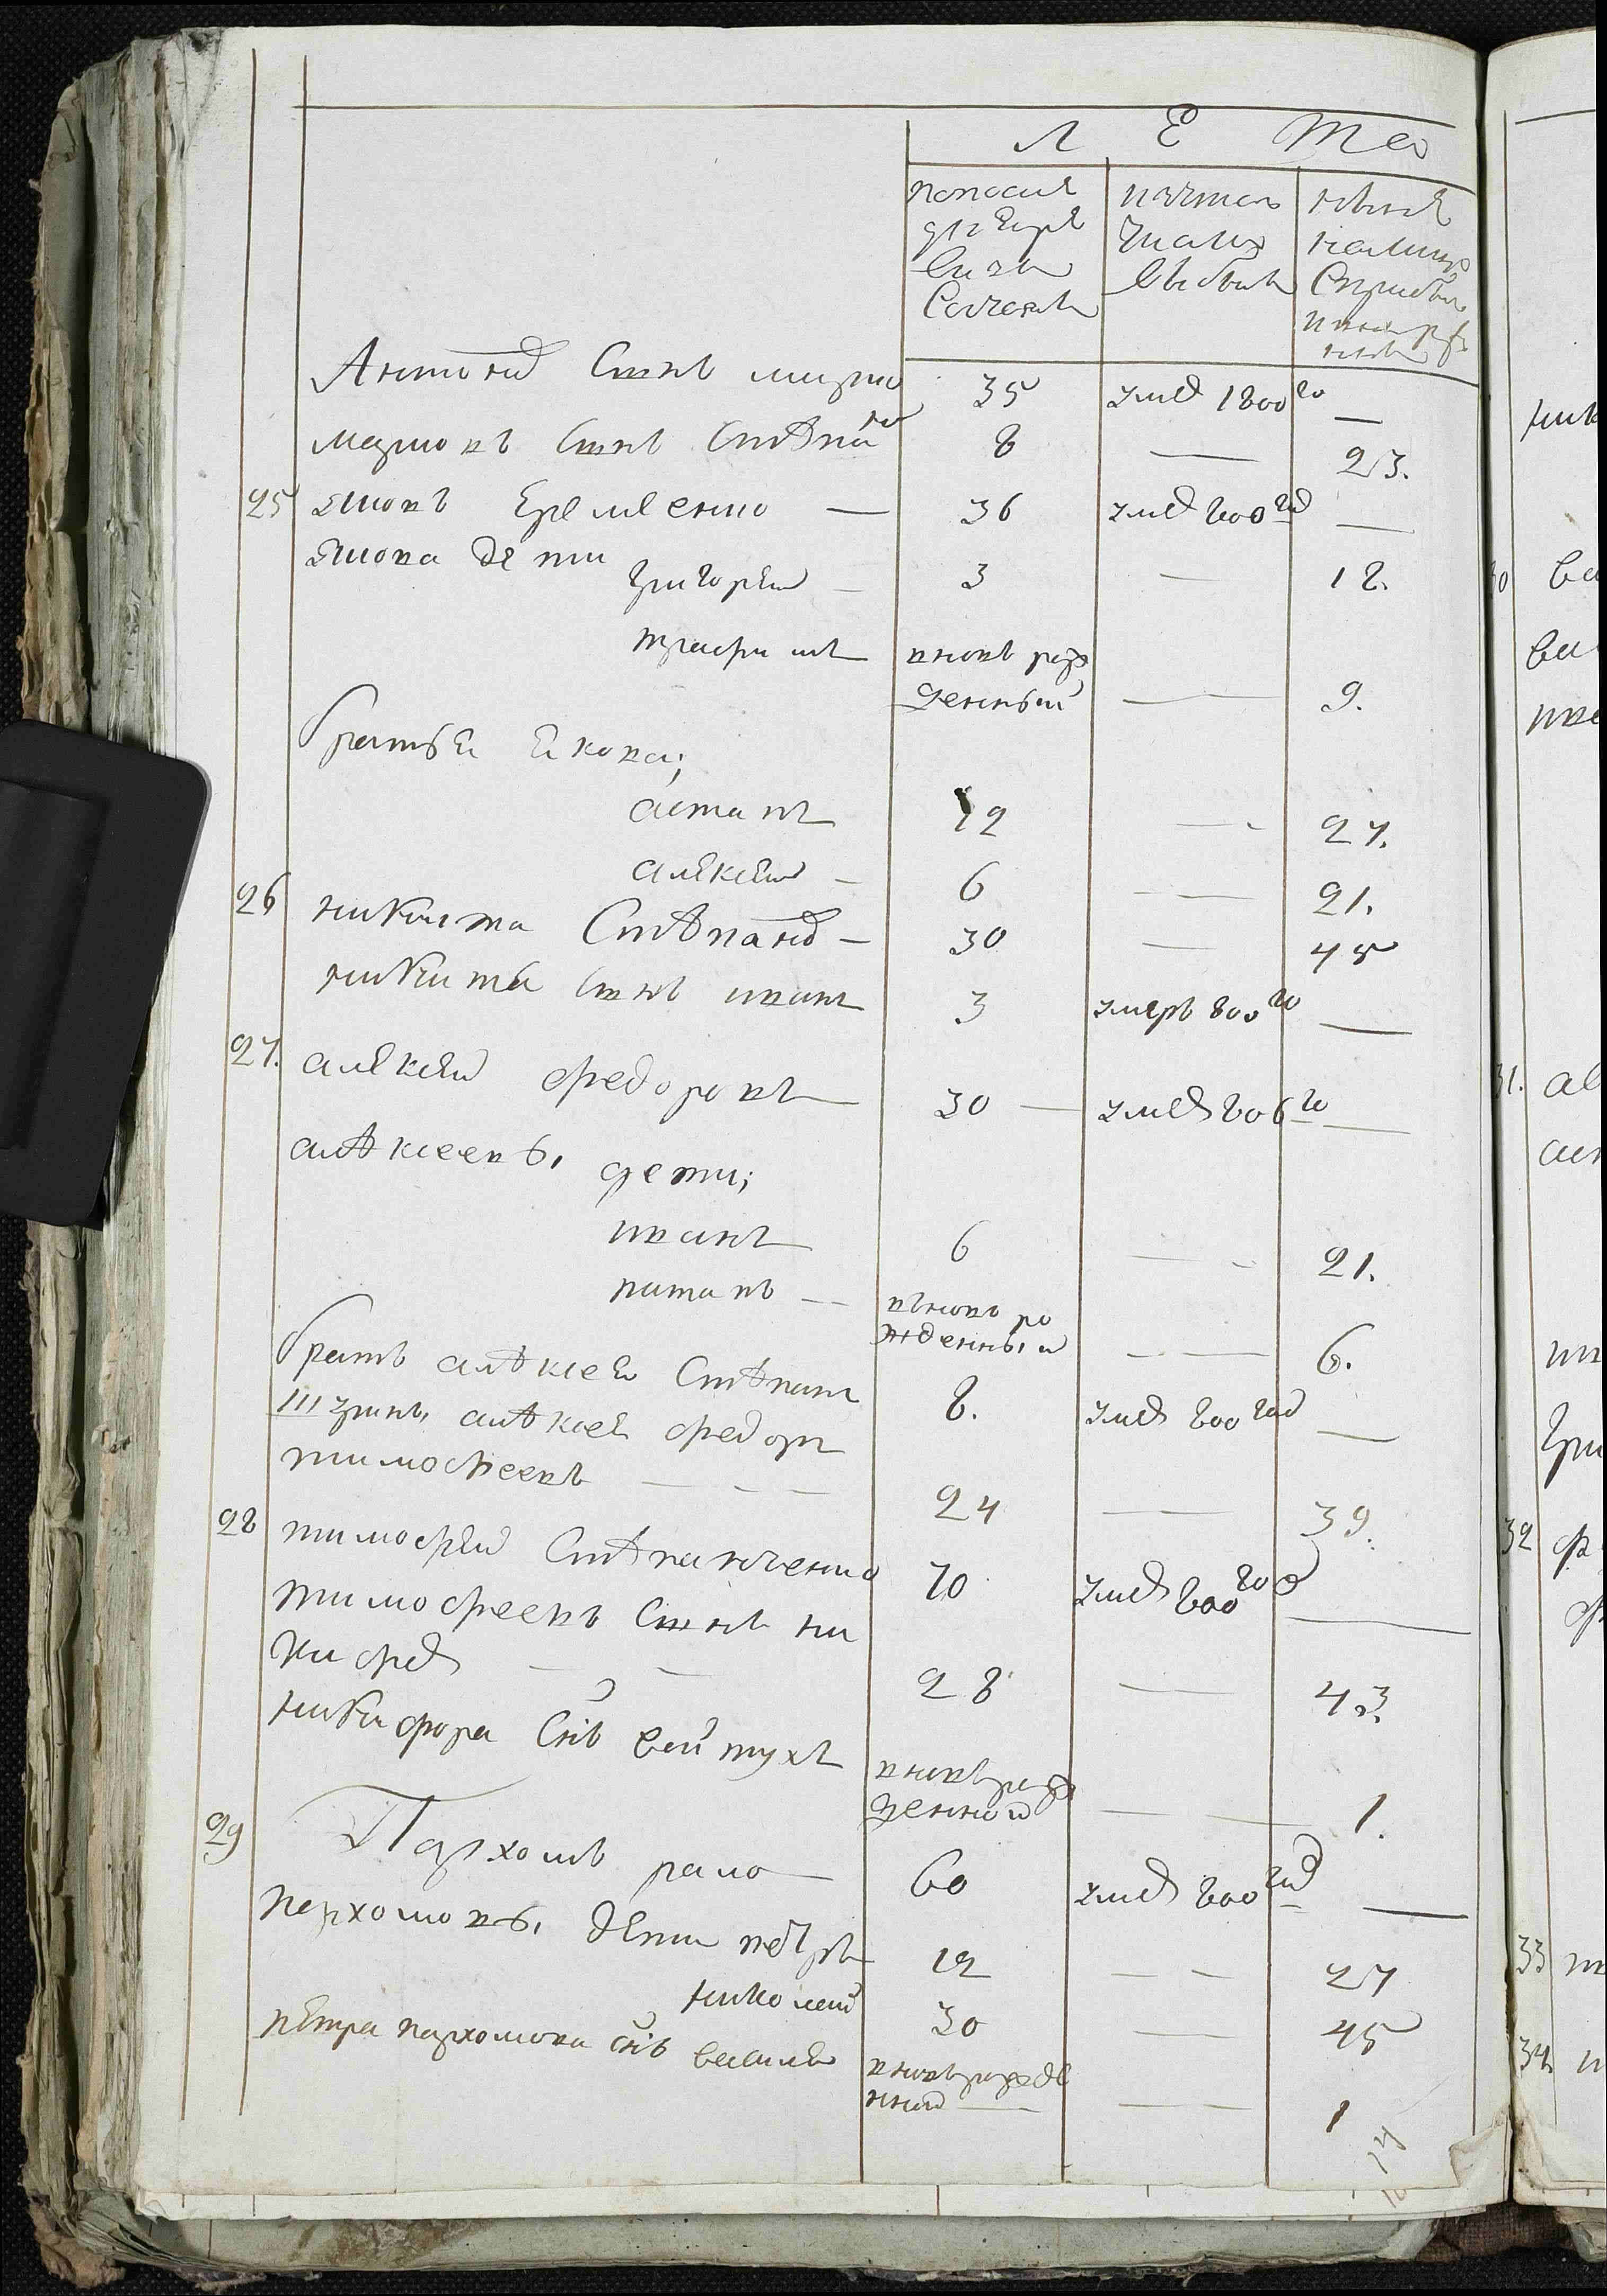 Лета
попослед
ней реви
зии
состояло
изтого
числа
выбыло
ныне
налицо
Антонов Сынъ
35 умер 1800го —
Марковъ Сынъ Степанъ 8 — 23.
25 яковъ Еремеенко — 36 умер 800год —
якова дети
Григорей — 3 — 18.
трафимъ вновь рож
денный — 9.
братья якова;
астапъ 12 — 27.
алексей — 6 — 21.
26 никита Степанов — 30 — 45
никиты Сынъ иванъ 3 умеръ 800го —
27. алексей федоровъ 30 — умер 806го —
алексеевы дети;
иванъ 6 — 21.
потапъ — вновь ро
жденный — 6.
братъ алексея Степанъ 8. умер 800год —
шуринъ алексея федоръ
тимофеевъ — 24 — 39.
28 тимофей Степанченко 70 умер 800год —
тимофеевъ Сынъ ни
кифор — 28 — 43.
никифора Сынъ евтухъ вновь рож
денной — 1.
29 Пархомъ 60 умер 800год —
пархомовы дети петръ 12 — 27
николай 30 — 45
петра пархомова Сынъ василей вновь рожде
нной — 1
30
31.
32
33
34.